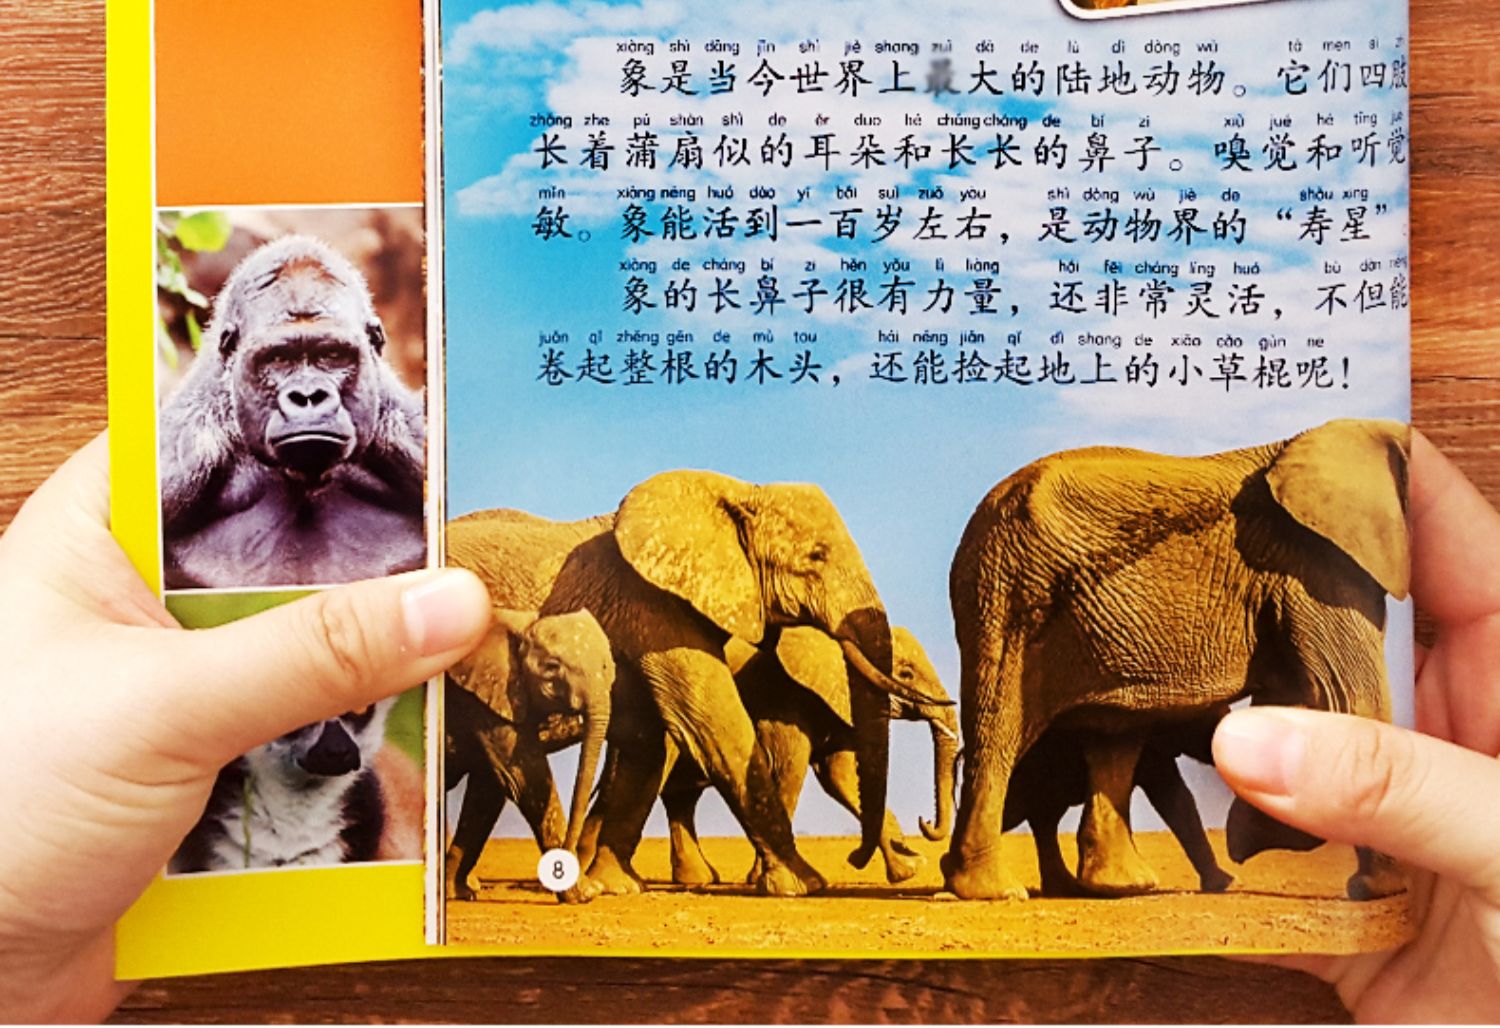 xiàng shì dāng jīn shì jiè shang zuì dà de lù dì dòng wù tā men sì
象是当今世界上最大的陆地动物。它们四肢
zhǎng zhe pú shàn shì de ěr duo hé cháng cháng de bí zi xiù jué hé tīng jué
长着蒲扇似的耳朵和长长的鼻子。嗅觉和听觉
mǐn xiàng néng huó dào yì bǎi suì zuǒ yòu shì dòng wù jiè de shòu xing
敏。象能活到一百岁左右，是动物界的“寿星”
xiàng de cháng bí zi hěn yǒu lì liàng hái fēi cháng líng huó bù dàn néng
象的长鼻子很有力量，还非常灵活，不但能
juǎn qǐ zhěng gēn de mù tou hái néng jiǎn qǐ dì shang de xiǎo cǎo gùn ne
卷起整根的木头，还能捡起地上的小草棍呢！
8